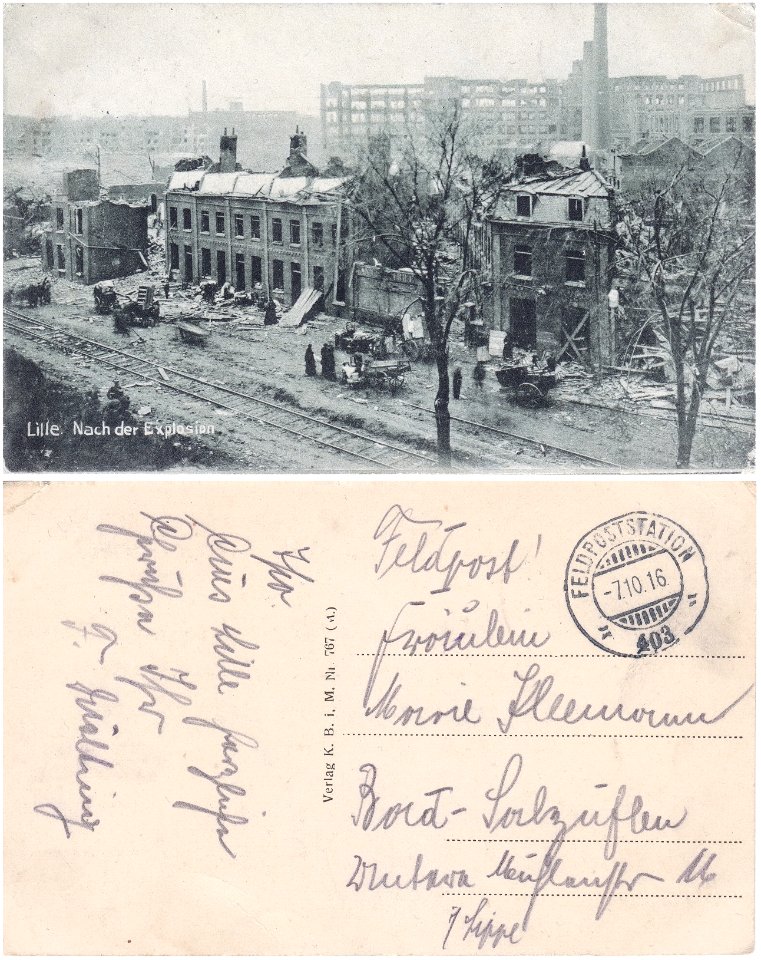 Lille. Nach der Explosion
Feldpost!
FELDPOSTSTATION
-7.10.16
403
Fräulein
Marie Kleemann
Bad-Salzuflen
Untere Mühlenstr 16
/Lippe
Verlag K. B. i. M. Nr. 767 (A.)
Aus Lille herzliche
Grüße Ihr